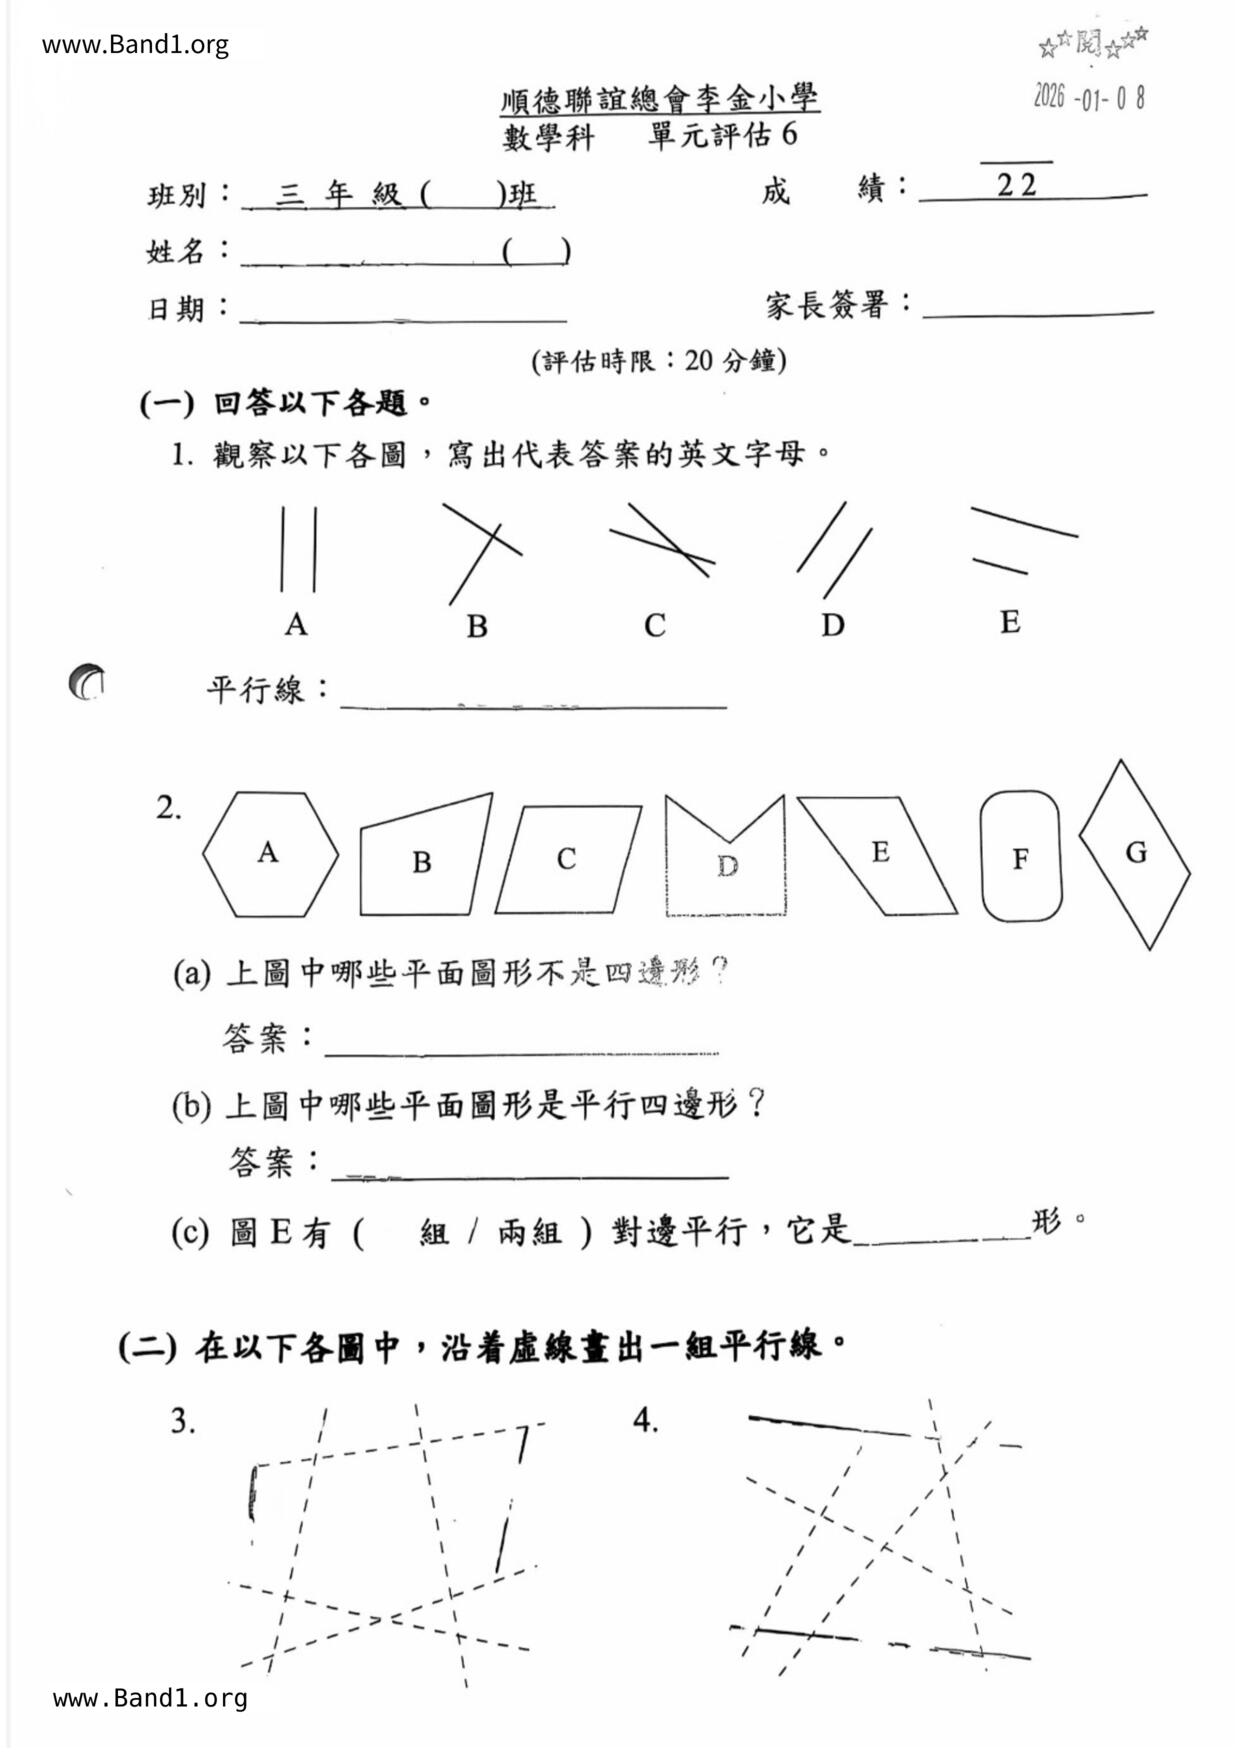 www.Band1.org
閱
2026 -01- 0 8
順德聯誼總會李金小學
數學科 單元評估 6
班別： 三 年 級 ( )班 成 績： 22
姓名： ( )
日期： 家長簽署：
(評估時限：20 分鐘)
(一) 回答以下各題。
1. 觀察以下各圖，寫出代表答案的英文字母。
A B C D E
平行線：
2.
A B C D E F G
(a) 上圖中哪些平面圖形不是四邊形？
答案：
(b) 上圖中哪些平面圖形是平行四邊形？
答案：
(c) 圖 E 有 ( 組 / 兩組 ) 對邊平行，它是 形。
(二) 在以下各圖中，沿着虛線畫出一組平行線。
3. 4.
www.Band1.org